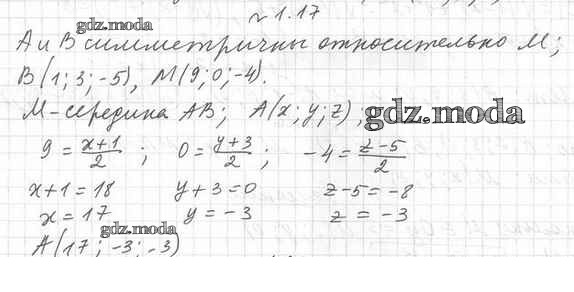 № 1.17
gdz.moda
А и В симметричны относительно М;
В(1; 3; -5), М(9; 0; -4).
М-середина АВ; А(x; y; z);
gdz.moda
9 = (x+1)/2 ; 0 = (y+3)/2 ; -4 = (z-5)/2
x+1 = 18 y+3 = 0 z-5 = -8
x = 17 y = -3 z = -3
gdz.moda
А(17; -3; -3)